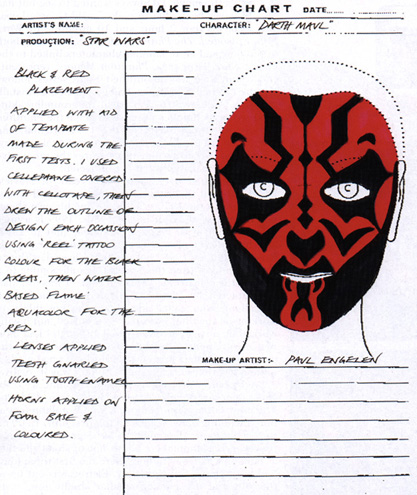 MAKE-UP CHART DATE
ARTIST'S NAME: CHARACTER: "DARTH MAUL"
PRODUCTION: "STAR WARS"
BLACK & RED
PLACEMENT.
APPLIED WITH AID
OF TEMPLATE
MADE DURING THE
FIRST TESTS. I USED
CELLEPHANE COVERED
WITH CELLOTAPE, THEN
DREN THE OUTLINE OF
DESIGN EACH OCCASION
USING 'REEL' TATTOO
COLOUR FOR THE BLACK
AREAS. THEN WATER
BASED 'FLAME'
AQUACOLOR FOR THE
RED.
LENSES APPLIED
TEETH GNARLED
USING TOOTH ENAMEL
HORNS APPLIED ON
FOAM BASE &
COLOURED.
C C
MAKE-UP ARTIST:- PAUL ENGELEN